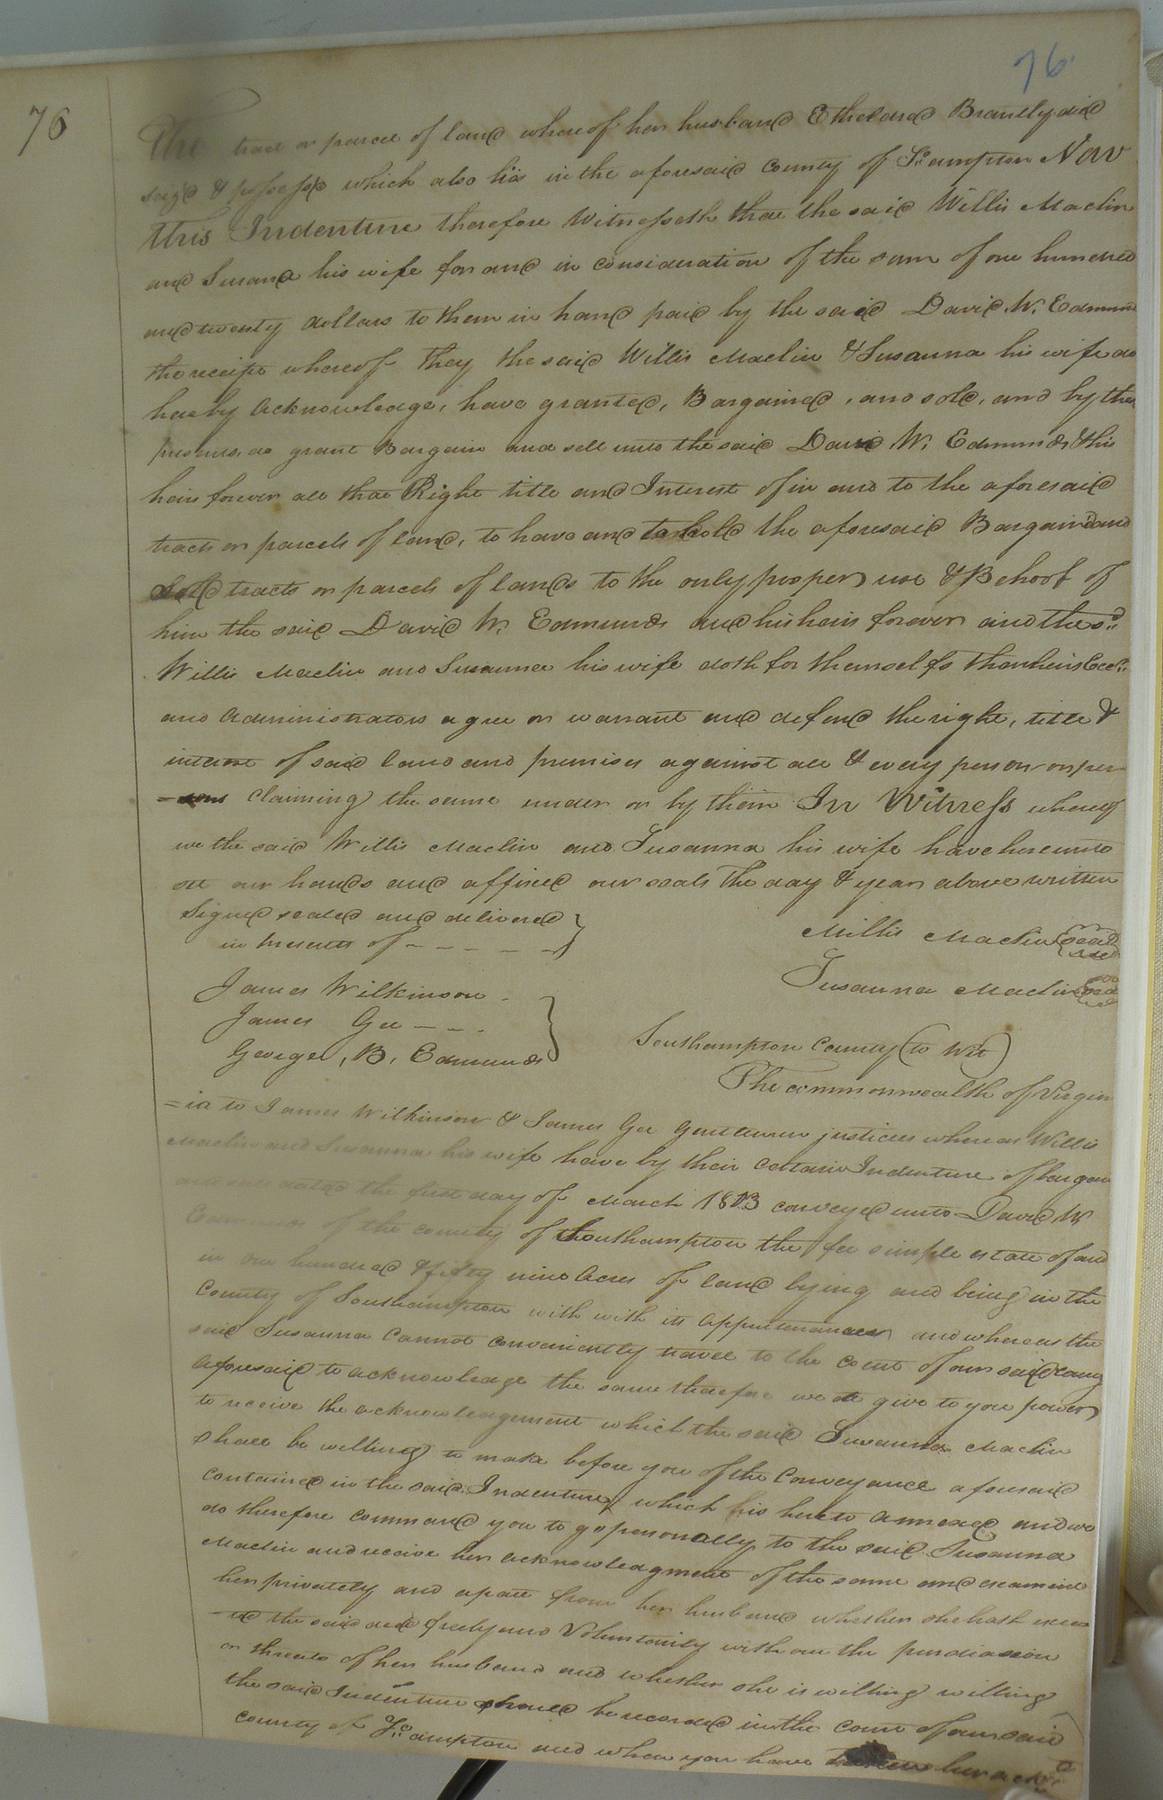 76
76
The tract or parcel of land whereof her husband Ethelared Brantly died
seizd & possessd which also lies in the aforesaid County of So.ampton Now
this Indenture therefore Witnesseth that the said Willis Maclin
and Susana his wife for and in consideration of the sum of one hundred
and twenty dollars to them in hand paid by the said David W. Edmund
the receipt whereof they the said Willis Maclin & Susanna his wife do
hereby acknowledge, have granted, Bargained, and sold, and by these
presents, do grant Bargain and sell unto the said David W. Edmunds & his
heirs forever all that Right title and Interest of in and to the aforesaid
tracts or parcels of land, to have and to hold the aforesaid Bargaind and
sold tracts or parcels of lands to the only proper use & Behoof of
him the said David W. Edmunds and his heirs forever and the sd.
Willis Maclin and Susanna his wife doth for themselfs their heirs Exec.
and administrators agree or warrant and defend the right, title &
interest of said land and premises against all & every person or per
=sons claiming the same under or by them In Witness whereof
we the said Willis Maclin and Susanna his wife have hereunto
set our hands and affixed our seals the day & year above written
Signed sealed and delivered
in presents of - - - - - -
Willis Maclin seal
Susanna Maclin seal
James Wilkinson
James Gee - - -
George, B, Edmunds
Southampton County (to Wit)
The commonwealth of Virgin
=ia to James Wilkinson & James Gee Gentlemen justices whereas Willis
Maclin and Susanna his wife have by their certain Indenture of bargain
and dated the first day of March 1813 conveyed unto David W
Edmunds of the county of Southampton the fee simple estate of and
in one hundred & fifty nine Acres of land lying and being in the
County of Southampton with with its appurtenances and whereas the
said Susanna cannot conveniently travel to the court of our said County
aforesaid to acknowledge the same therefore we do give to you power
to receive the acknowledgment which the said Susanna Maclin
shall be willing to make before you of the Conveyance aforesaid
contained in the said Indenture, which his hereto annexed and we
do therefore command you to go personally to the said Susanna
Maclin and receive her acknowledgment of the same and examine
her privately and apart from her husband whether she hath execu
=ted the said deed freely and Voluntarily without the persuasion
or threats of her husband and whether she is willing willing
the said Indenture should be recorded in the court of our said
County of So.ampton and when you have her ack